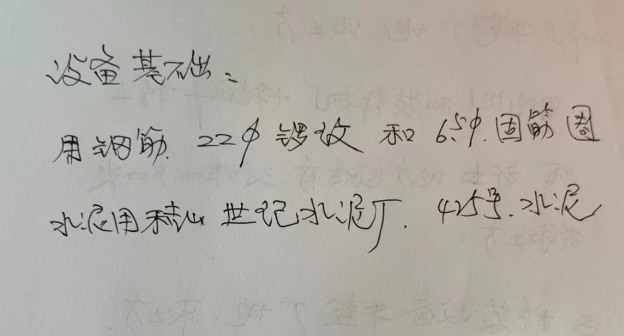 设备基础：
用钢筋 22φ 锣纹 和 6.5φ.固筋圈
水泥用 世纪水泥厂. 425号.水泥